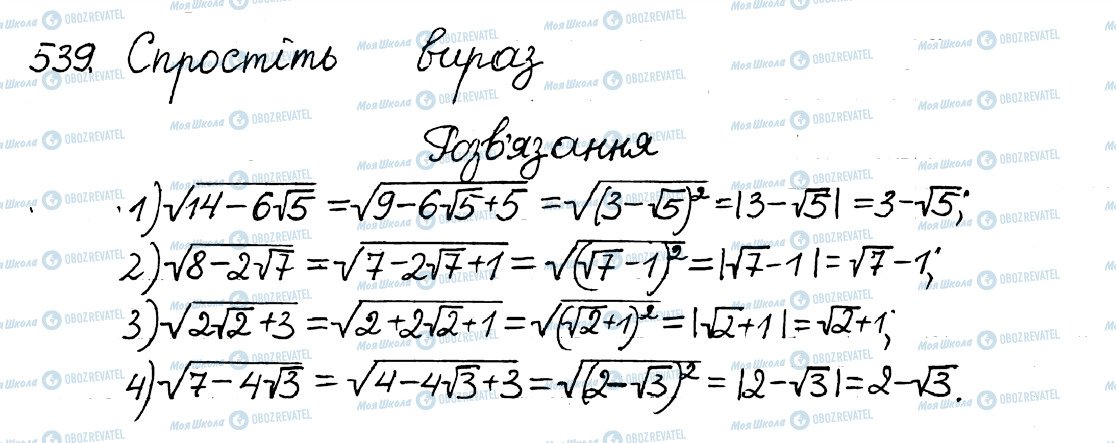 539. Спростіть вираз
Розв'язання
1) √(14-6√5) = √(9-6√5+5) = √((3-√5)²) = |3-√5| = 3-√5;
2) √(8-2√7) = √(7-2√7+1) = √((√7-1)²) = |√7-1| = √7-1;
3) √(2√2+3) = √(2+2√2+1) = √((√2+1)²) = |√2+1| = √2+1;
4) √(7-4√3) = √(4-4√3+3) = √((2-√3)²) = |2-√3| = 2-√3.
Моя Школа OBOZREVATEL